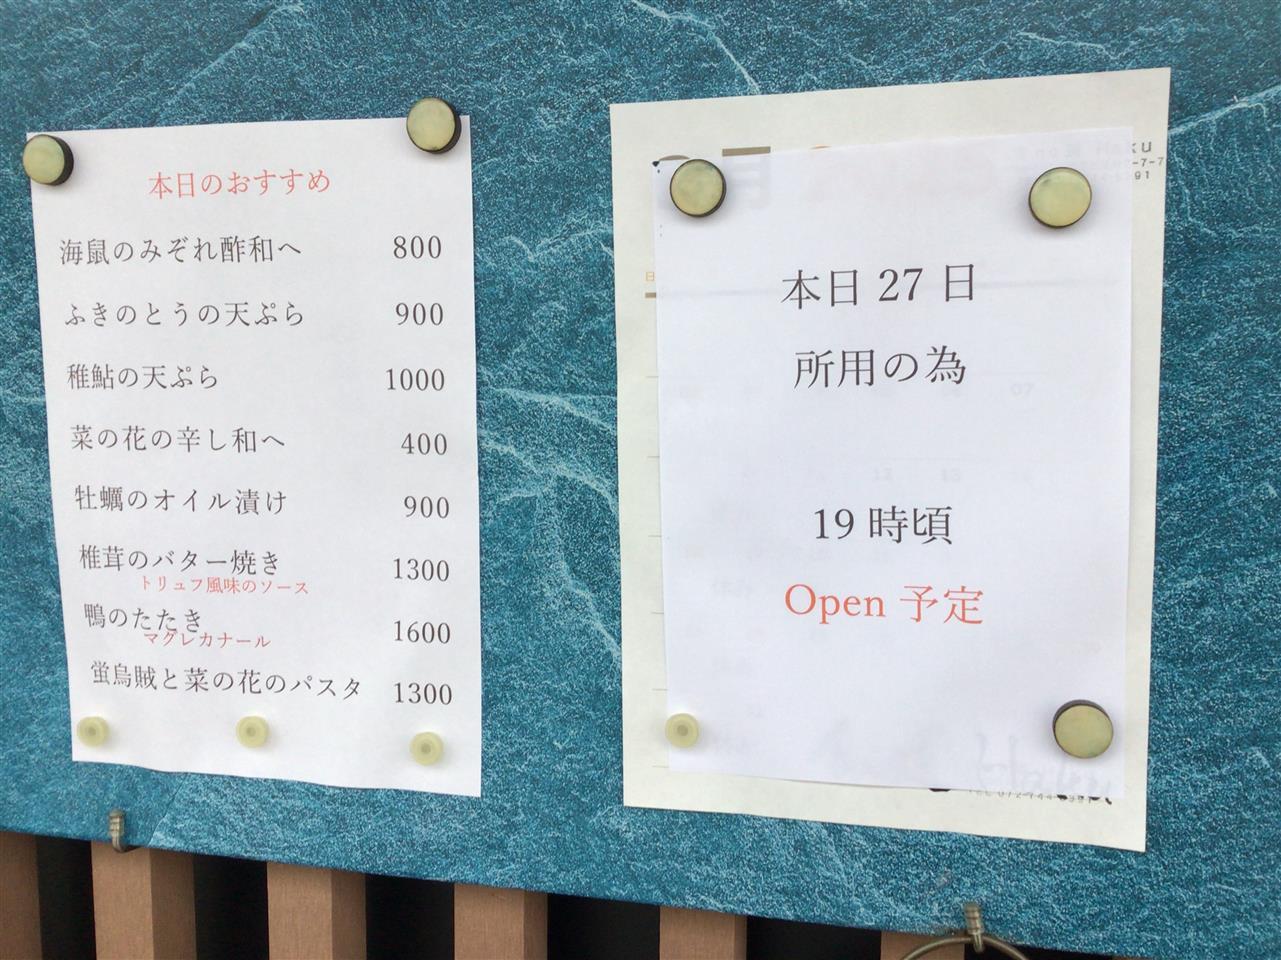 本日のおすすめ
海鼠のみぞれ酢和へ 800
ふきのとうの天ぷら 900
稚鮎の天ぷら 1000
菜の花の辛し和へ 400
牡蠣のオイル漬け 900
椎茸のバター焼き 1300
トリュフ風味のソース
鴨のたたき 1600
マグレカナール
蛍烏賊と菜の花のパスタ 1300
本日 27 日
所用の為
19 時頃
Open 予定